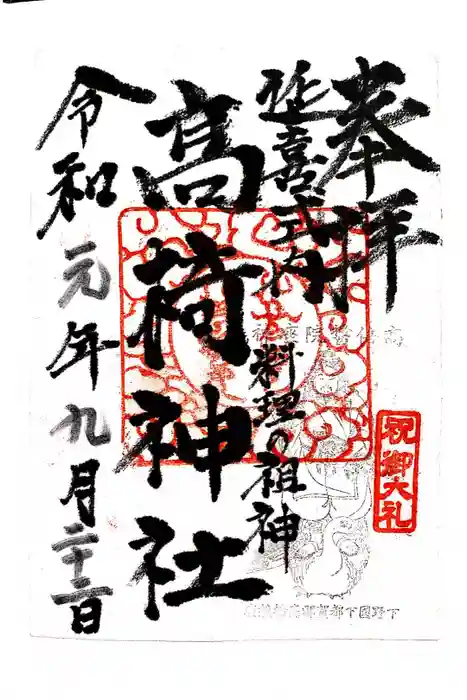 奉拝
延喜式内
料理の祖神
高椅神社
令和元年九月二十二日
祝御大礼
下野國下都賀郡